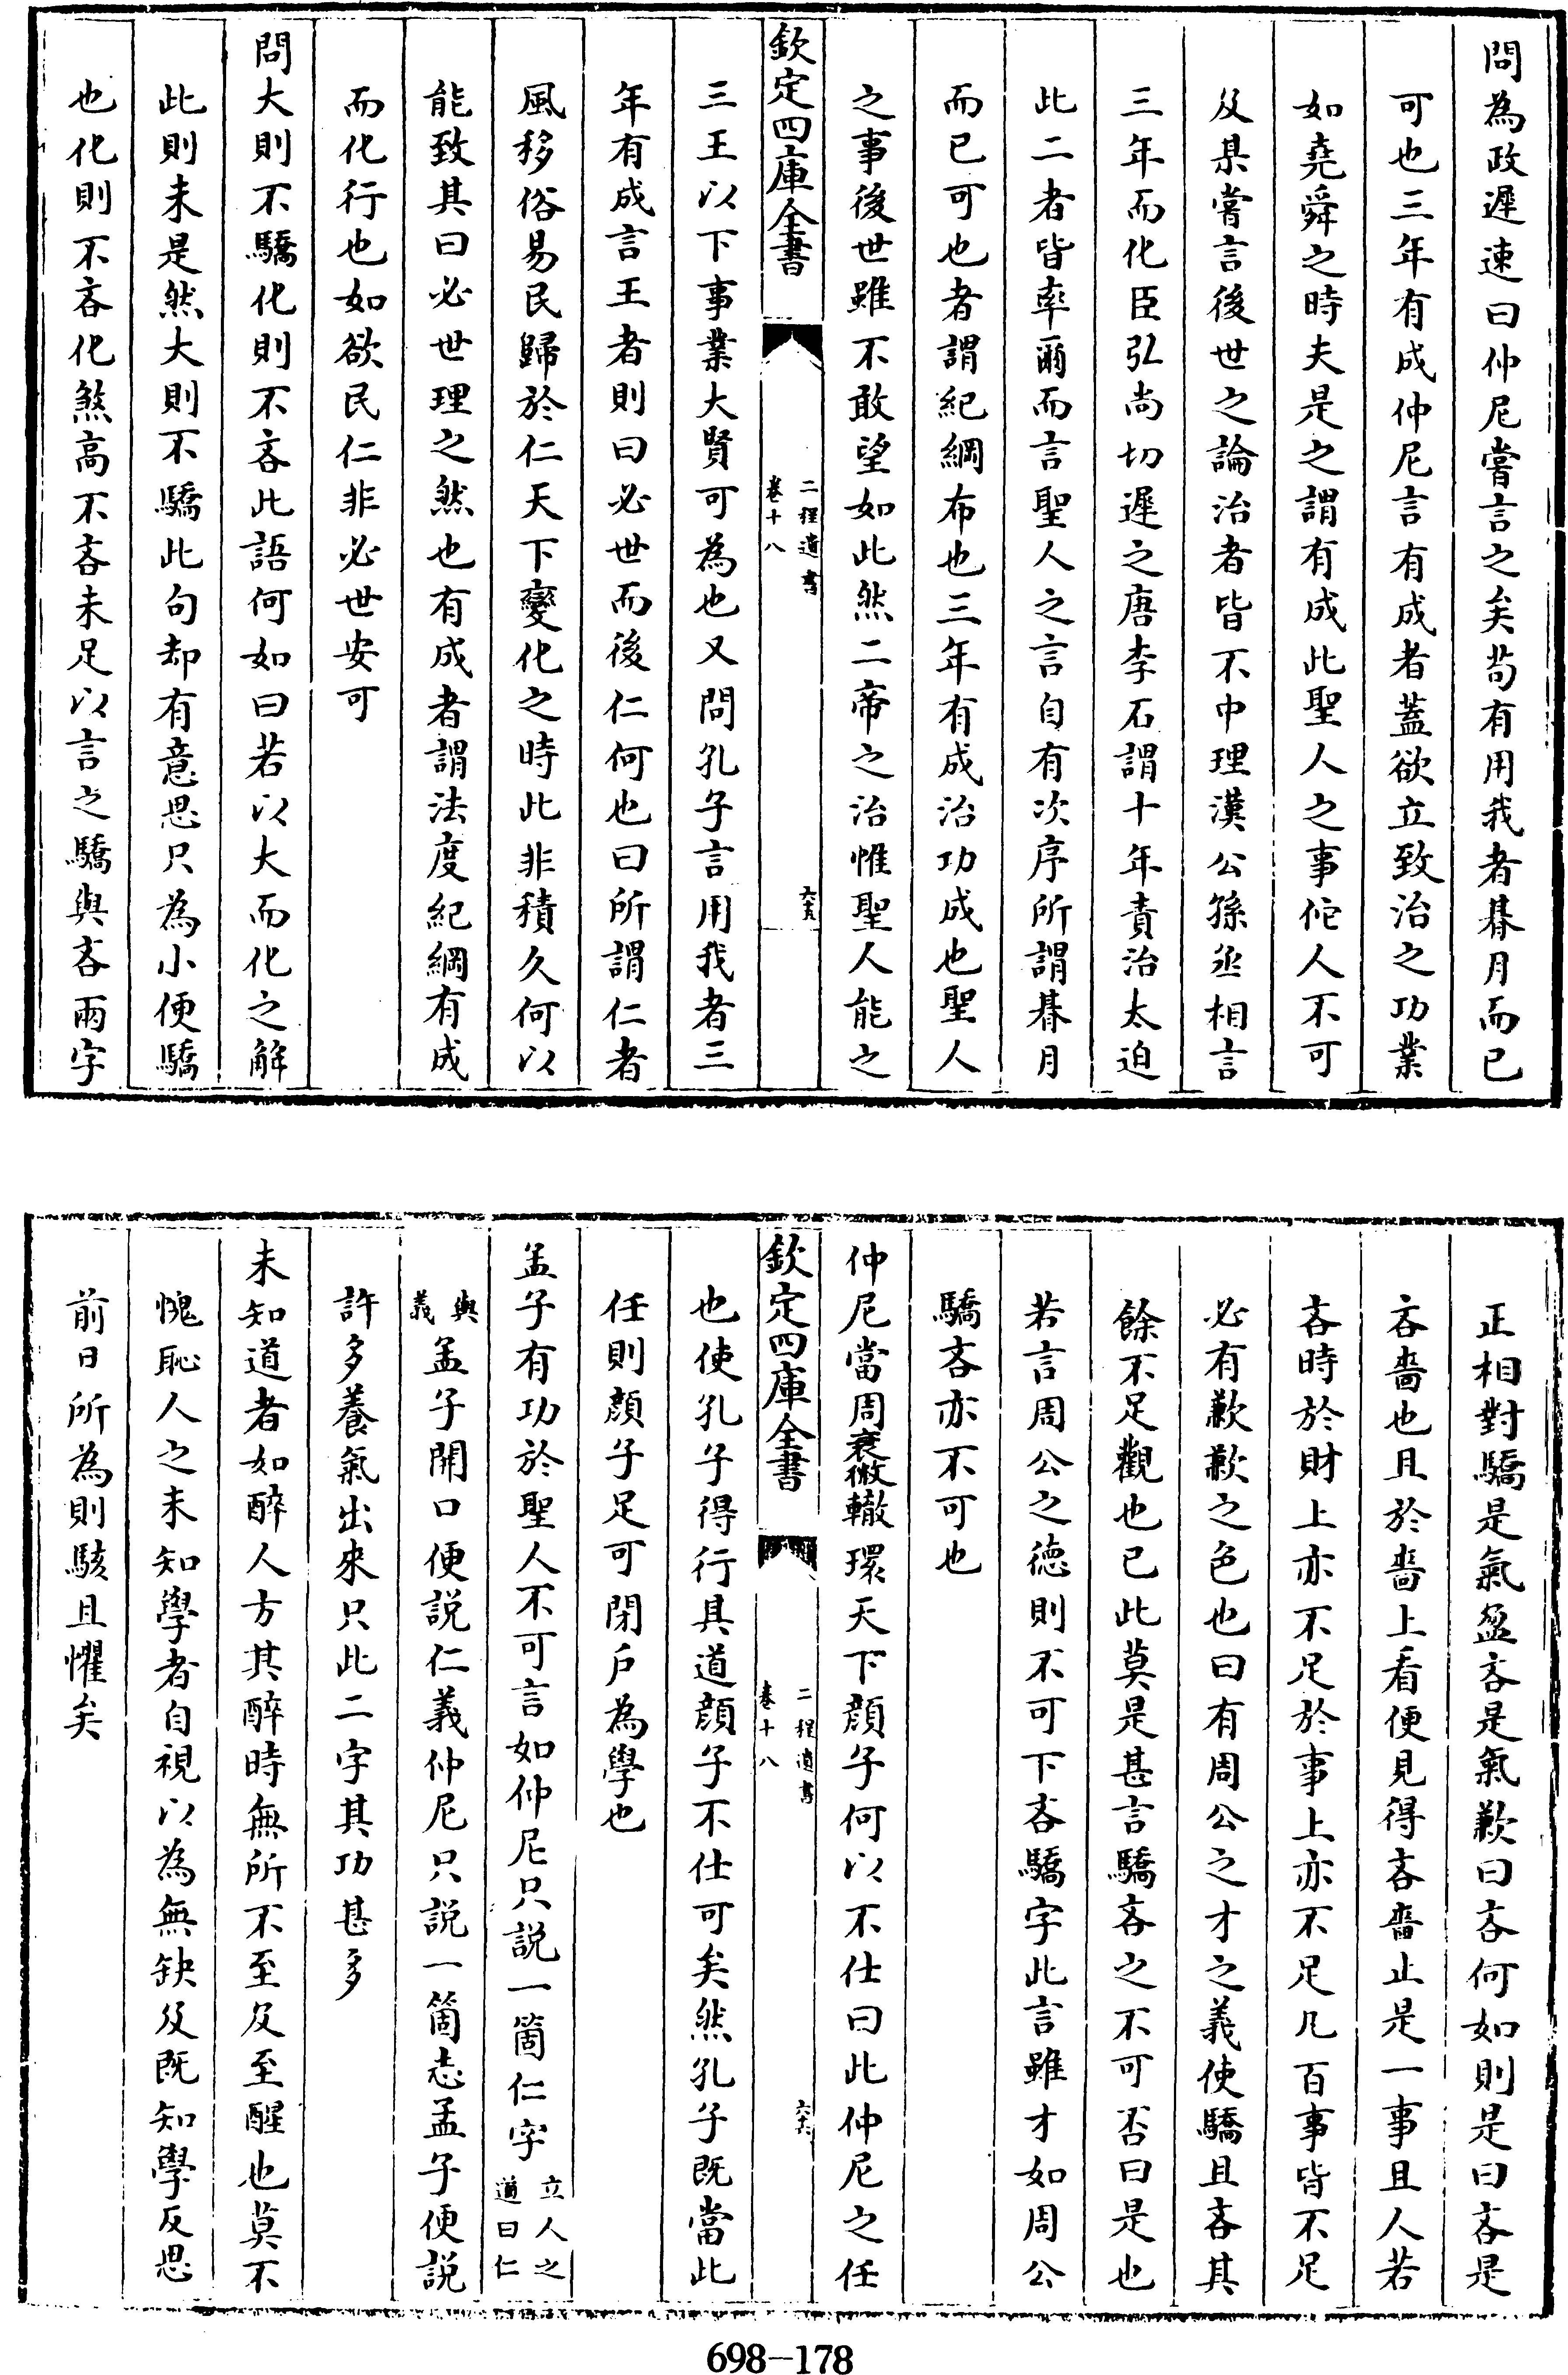 問為政遲速曰仲尼嘗言之矣茍有用我者朞月而已
可也三年有成仲尼言有成者蓋欲立致治之功業
如堯舜之時夫是之謂有成此聖人之事佗人不可
及某嘗言後世之論治者皆不中理漢公孫丞相言
三年而化臣弘尚切遲之唐李石謂十年責治太迫
此二者皆率爾而言聖人之言自有次序所謂朞月
而已可也者謂紀綱布也三年有成治功成也聖人
之事後世雖不敢望如此然二帝之治惟聖人能之
欽定四庫全書
二程遺書
卷十八
六十五
三王以下事業大賢可為也又問孔子言用我者三
年有成言王者則曰必世而後仁何也曰所謂仁者
風移俗易民歸於仁天下變化之時此非積久何以
能致其曰必世理之然也有成者謂法度紀綱有成
而化行也如欲民仁非必世安可
問大則不驕化則不吝此語何如曰若以大而化之解
此則未是然大則不驕此句却有意思只為小便驕
也化則不吝化煞高不吝未足以言之驕與吝兩字
正相對驕是氣盈吝是氣歉曰吝何如則是曰吝是
吝嗇也且於嗇上看便見得吝嗇止是一事且人若
吝時於財上亦不足於事上亦不足凡百事皆不足
必有歉歉之色也曰有周公之才之義使驕且吝其
餘不足觀也已此莫是甚言驕吝之不可否曰是也
若言周公之德則不可下吝驕字此言雖才如周公
驕吝亦不可也
仲尼當周衰微轍環天下顔子何以不仕曰此仲尼之任
欽定四庫全書
二程遺書
卷十八
六十六
也使孔子得行其道顔子不仕可矣然孔子既當此
任則顔子足可閉戶為學也
孟子有功於聖人不可言如仲尼只説一箇仁字立人之道曰仁
與義孟子開口便説仁義仲尼只説一箇志孟子便説
許多養氣出來只此二字其功甚多
未知道者如醉人方其醉時無所不至及至醒也莫不
愧恥人之未知學者自視以為無缺及既知學反思
前日所為則駭且懼矣
698-178